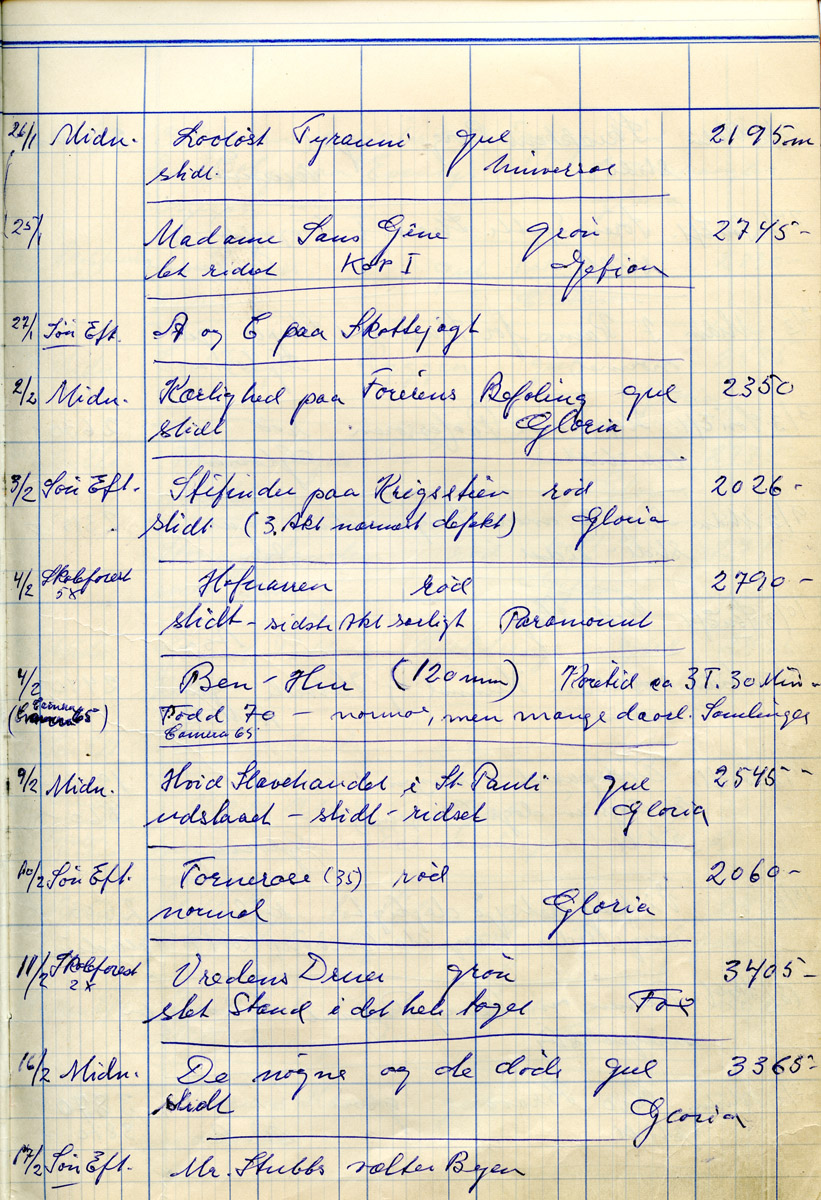 26/1 Midn. Lovløst Tyranni gul 2195 m
slidt. Universal
25/1 Madame Sans Gêne grön 2745-
let ridset Kop I Gefion
27/1 Søn Eft. A og C paa Skattejagt
2/2 Midn. Kærlighed paa Førerens Befaling gul 2350
slidt Gloria
3/2 Søn Eft. Stifinder paa Krigsstien rød 2026-
slidt. (3. Akt normert defekt) Gloria
4/2 Skoleforest 5x Hofnarren rød 2790-
slidt - sidste Akt særligt Paramount
4/2 Ben-Hur (120 mm) Köretid ca 3 T. 30 Min.
(Camera 65) Todd 70 - normal, men mange daarl. Samlinger
Camera 65
9/2 Midn. Hvid Slavehandel i St. Pauli gul 2545-
udslaaet - slidt - ridset Gloria
10/2 Søn Eft. Tornerose (35) rød 2060-
normal Gloria
11/2 Skoleforest 2x Vredens Druer grön 3405-
slet Stand i det hele taget Fox
16/2 Midn. De nøgne og de døde gul 3365-
slidt Gloria
17/2 Søn Eft. Mr. Stubbs vælter Byen